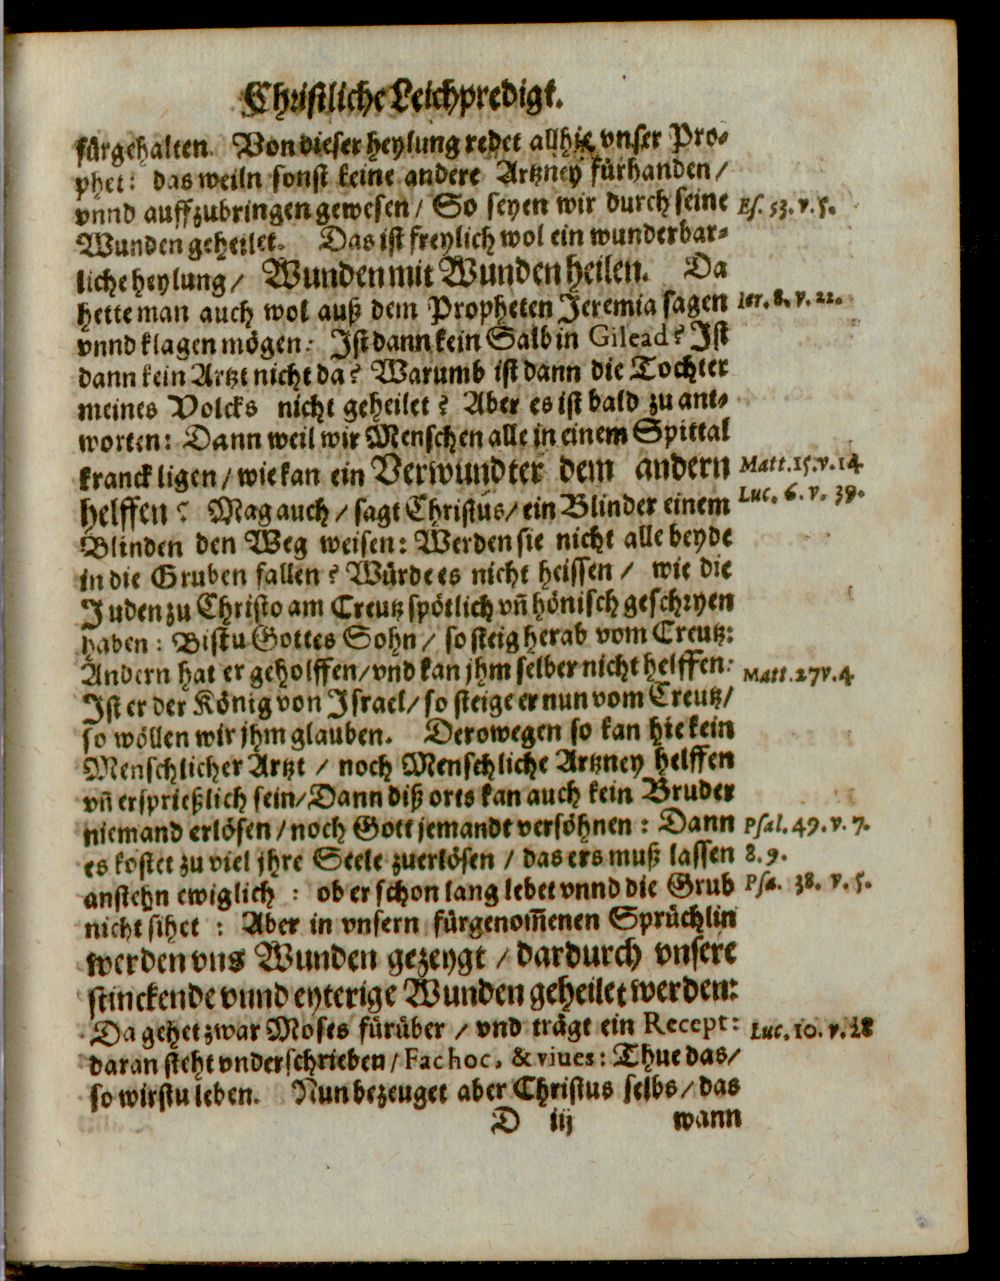 Christliche Leichpredigt.
fürgehalten. Von dieser heylung redet allhie vnser Pro-
phet: das weiln sonst keine andere Artzney fürhanden /
vnnd auffzubringen gewesen / So seyen wir durch seine
Es. 53. v. 5.
Wunden geheilet. Das ist freylich wol ein wunderbar-
liche heylung / Wunden mit Wunden heilen. Da
hette man auch wol auß dem Propheten Jeremia sagen
Ier. 8. v. 22.
vnnd klagen mögen: Ist dann kein Salb in Gilead? Ist
dann kein Artzt nicht da? Warumb ist dann die Tochter
meines Volcks nicht geheilet? Aber es ist bald zu ant-
worten: Dann weil wir Menschen alle in einem Spittal
kranck ligen / wie kan ein Verwundter dem andern
Matt. 15. v. 14
helffen? Mag auch / sagt Christus / ein Blinder einem
Luc. 6. v. 39.
Blinden den Weg weisen: Werden sie nicht alle beyde
in die Gruben fallen? Würde es nicht heissen / wie die
Juden zu Christo am Creutz spötlich vñ hönisch geschryen
haben: Bistu Gottes Sohn / so steig herab vom Creutz:
Andern hat er geholffen / vnd kan jhm selber nicht helffen:
Matt. 27 v. 4
Ist er der König von Israel / so steige er nun vom Creutz /
so wöllen wir jhm glauben. Derowegen so kan hie kein
Menschlicher Artzt / noch Menschliche Artzney helffen
vñ ersprießlich sein / Dann diß orts kan auch kein Bruder
niemand erlösen / noch Gott jemandt versöhnen: Dann
Psal. 49. v. 7.
es kostet zu viel jhre Seele zuerlösen / das ers muß lassen
8. 9.
anstehn ewiglich: ob er schon lang lebet vnnd die Grub
Psa. 38. v. 5.
nicht sihet: Aber in vnsern fürgenom̄enen Sprüchlin
werden vns Wunden gezeygt / dardurch vnsere
stinckende vnnd eyterige Wunden geheilet werden:
Da gehet zwar Moses fürüber / vnd trägt ein Recept:
Luc. 10. v. 28
daran steht vnderschrieben / Fac hoc, & viues: Thue das /
so wirstu leben. Nun bezeuget aber Christus selbs / das
D iij wann